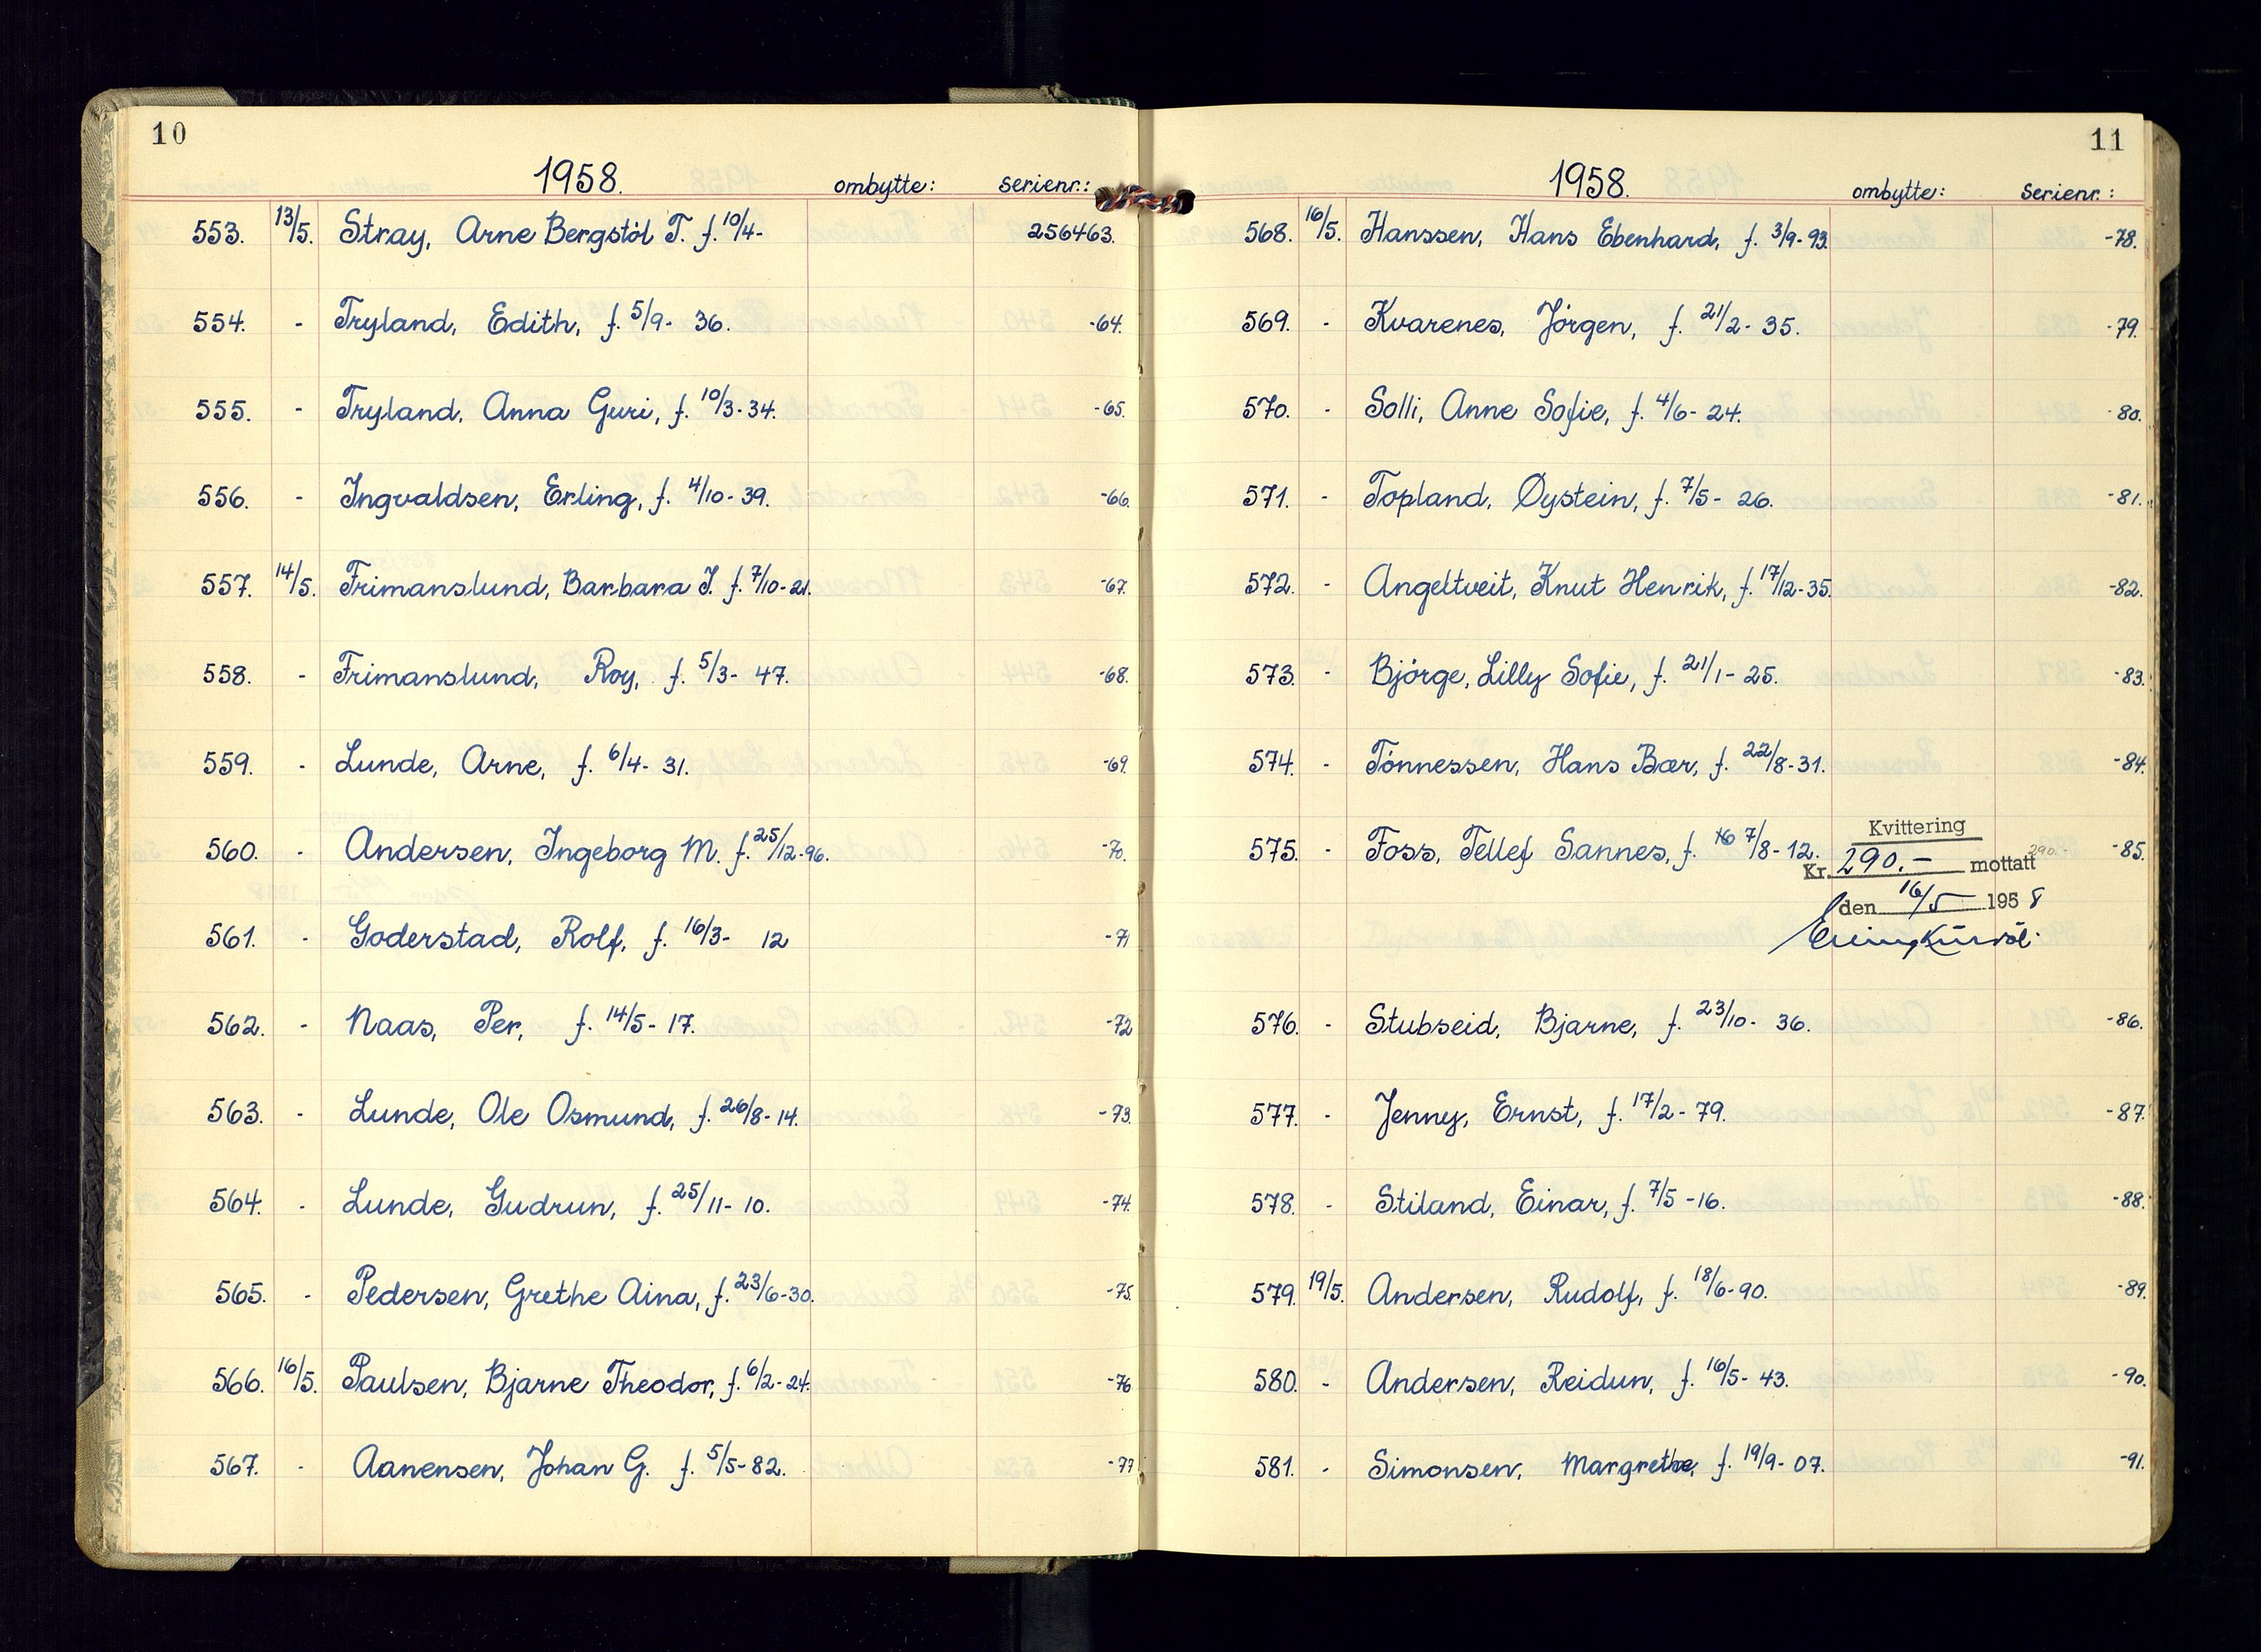 10
1958. ombytte: serienr.:
553. 13/5. Stray, Arne Bergstöl T. f. 10/4- 256463.
554. - Tryland, Edith, f. 5/9- 36. -64.
555. - Tryland, Anna Guri, f. 10/3-34. -65.
556. - Ingvaldsen, Erling, f. 4/10-39. -66.
557. 14/5. Frimanslund, Barbara J. f. 7/10-21. -67.
558. - Frimanslund, Roy, f. 5/3- 47. -68.
559. - Lunde, Arne, f. 6/4- 31. -69.
560. - Andersen, Ingeborg M. f. 25/12-96. -70.
561. - Goderstad, Rolf, f. 16/3- 12 -71
562. - Naas, Per, f. 14/5- 17. -72
563. - Lunde, Ole Osmund, f. 26/8-14. -73.
564. - Lunde, Gudrun, f. 25/11- 10. -74.
565. - Pedersen, Grethe Aina, f. 23/6-30. -75.
566. 16/5. Paulsen, Bjarne Theodor, f. 6/2-24. -76
567. - Aanensen, Johan G. f. 5/5-82. -77
11
1958. ombytte: serienr.:
568. 16/5. Hanssen, Hans Ebenhard, f. 3/9-93. -78.
569. - Kvarenes, Jörgen, f. 21/2- 35. -79.
570. - Solli, Anne Sofie, f. 4/6- 24. -80.
571. - Topland, Øystein, f. 7/5- 26. -81.
572. - Angeltveit, Knut Henrik, f. 17/12-35. -82.
573. - Björge, Lilly Sofie, f. 21/1- 25. -83.
574. - Tönnessen, Hans Bær, f. 22/8-31. -84.
575. - Foss, Tellef Sannes, f. 7/8-12. -85.
Kvittering
Kr. 290.- mottatt 290.-
den 16/5 1958
576. - Stubseid, Bjarne, f. 23/10- 36. -86.
577. - Jenny, Ernst, f. 17/2- 79. -87.
578. - Stiland, Einar, f. 7/5 -16. -88.
579. 19/5. Andersen, Rudolf, f. 18/6-90. -89.
580. - Andersen, Reidun, f. 16/5- 43. -90.
581. - Simonsen, Margrethe, f. 19/9- 07. -91.